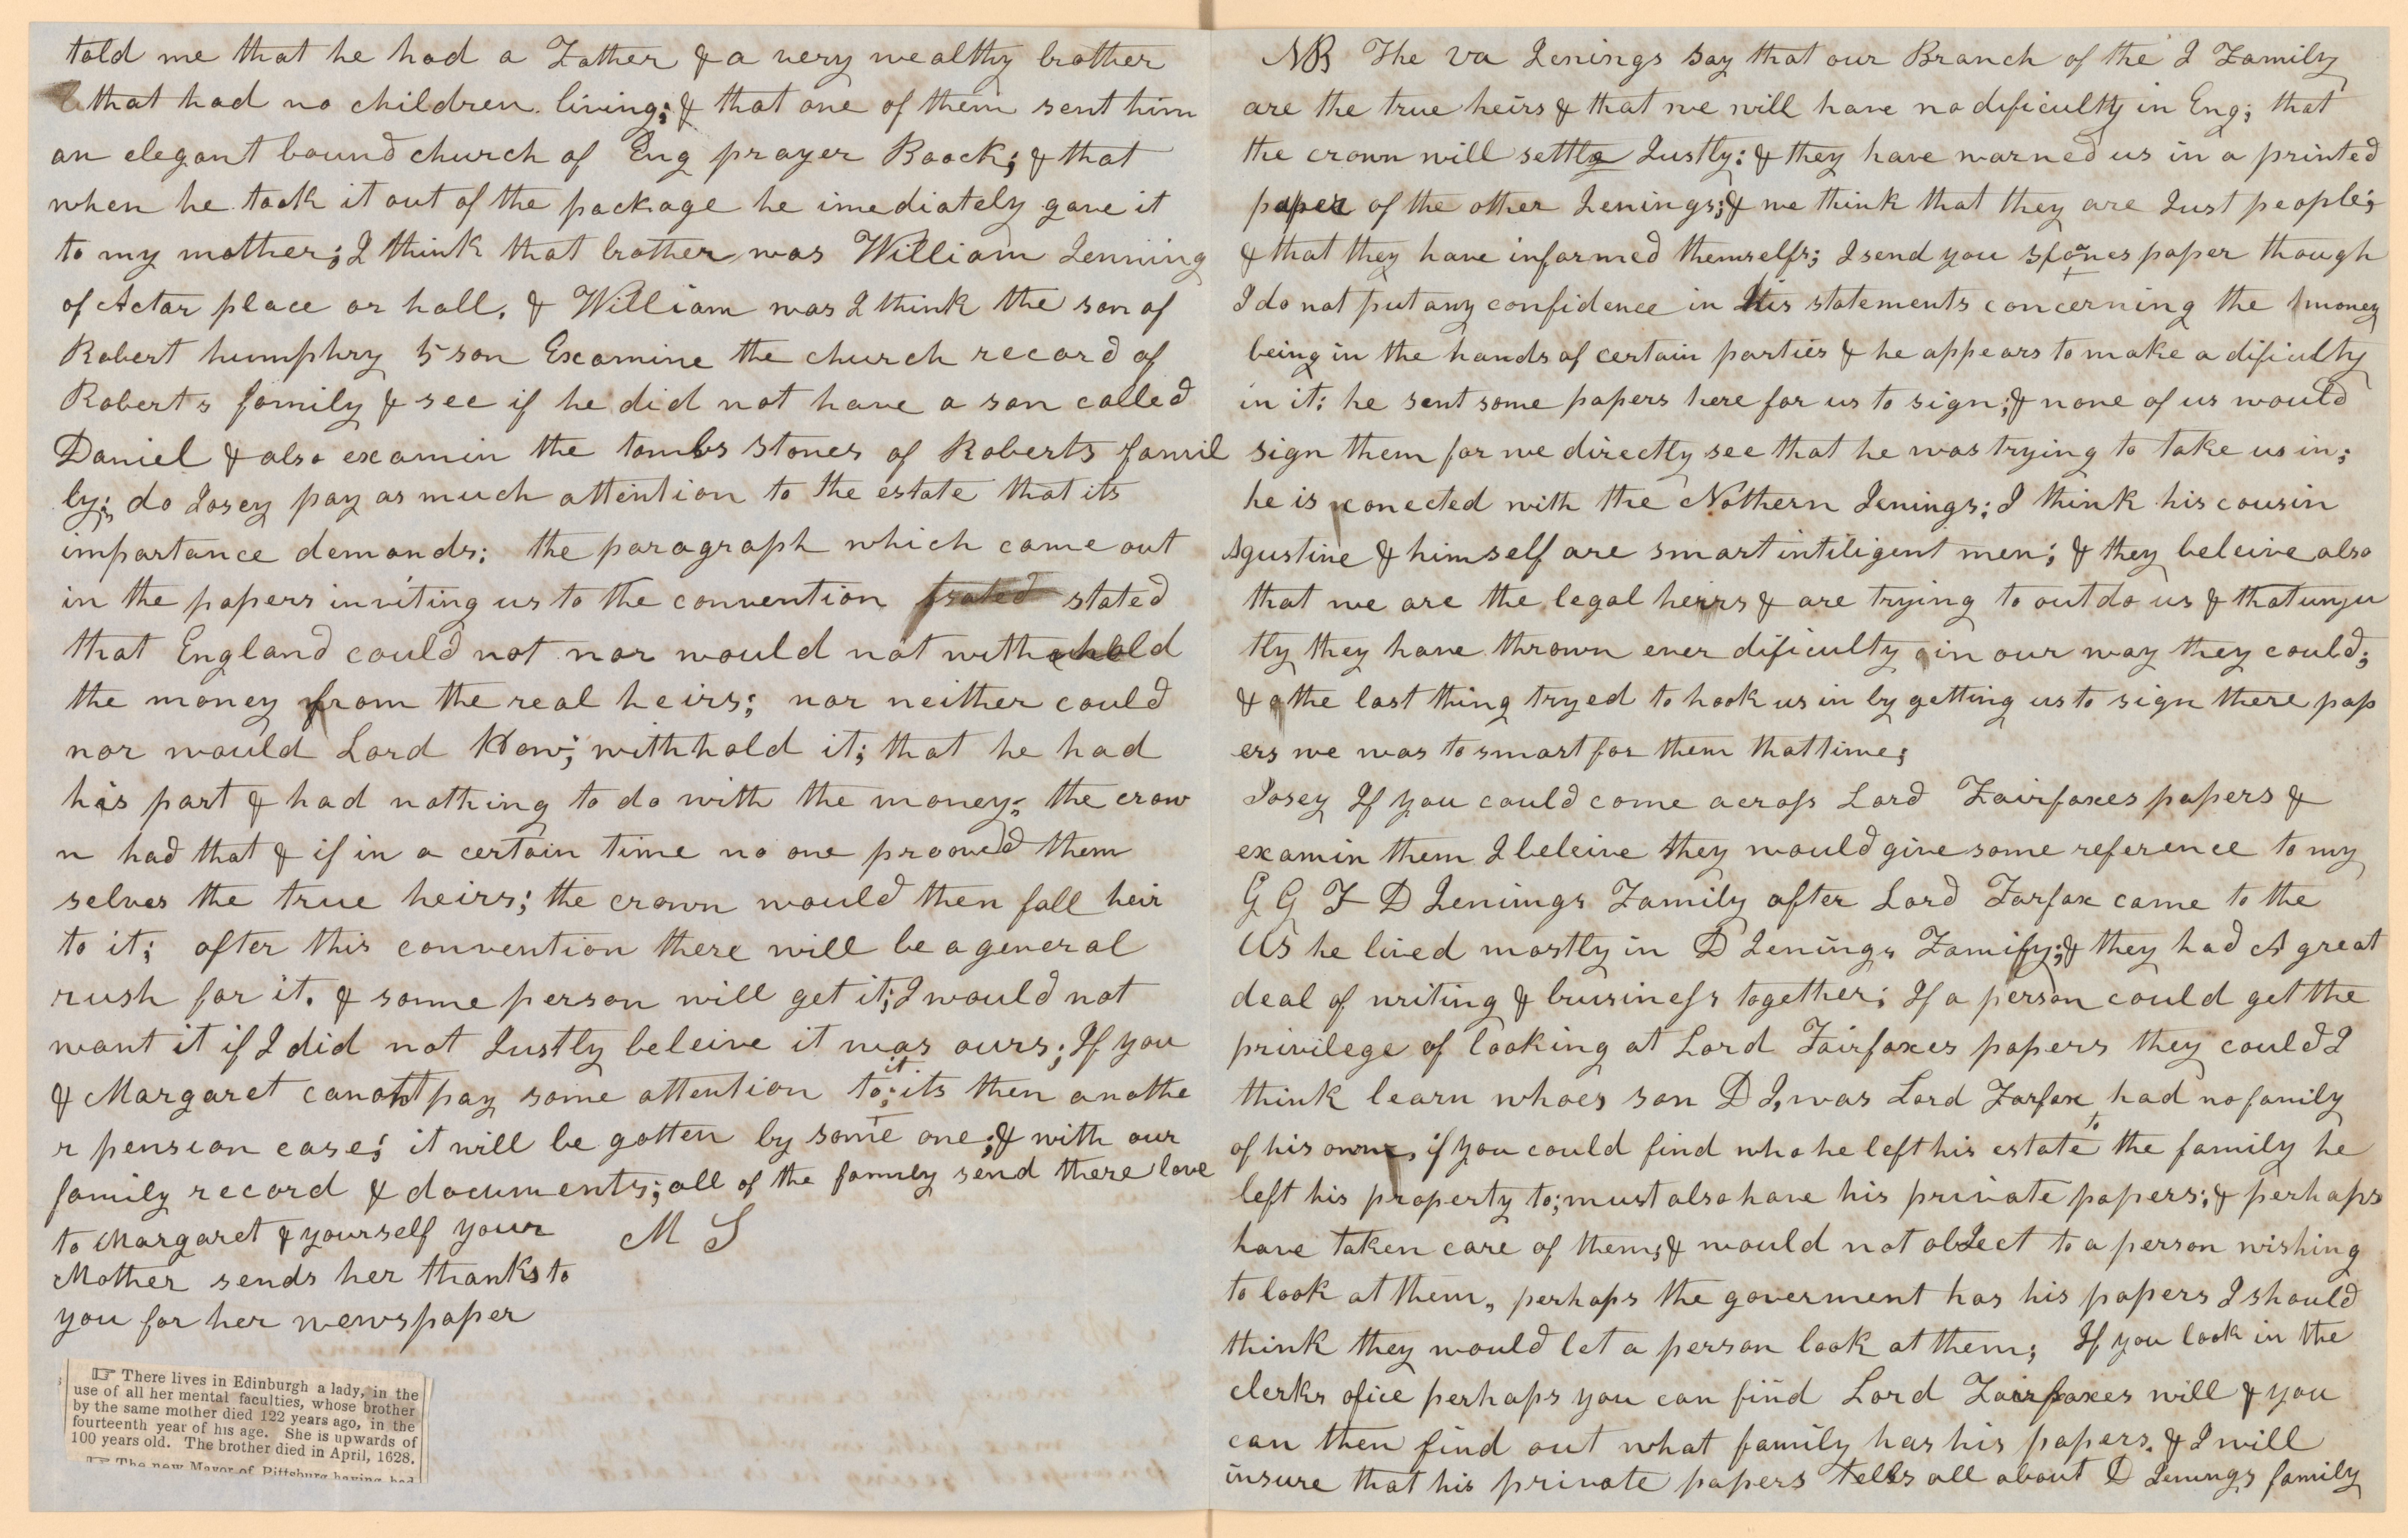 told me that he had a Father & a very wealthy brother
that had no children living; & that one of them sent him
an elegant bound church of Eng prayer Boock; & that
when he took it out of the package he imediately gave it
to my mother; I think that brother was William Jenning
of Actor place or hall. & William was I think the son of
Robert humphry 5 son Examine the church record of
Roberts family & see if he did not have a son called
Daniel & also examin the tombs stones of Roberts famil
ly; do Josey pay as much attention to the estate that its
importance demands: the paragraph which came out
in the papers inviting us to the convention stated
that England could not nor would not withhold
the money from the real heirs; nor neither could
nor would Lord How; withhold it; that he had
his part & had nothing to do with the money; the crow
n had that & if in a certain time no one prooved them
selves the true heirs; the crown would then fall heir
to it; after this convention there will be a general
rush for it. & some person will get it; I would not
want it if I did not Justly beleive it was ours; If you
& Margaret canott pay some attention to it; its then anothe
r pension case; it will be gotten by some one; & with our
family record & documents; all of the family send there love
to Margaret & yourself your M S
Mother sends her thanks to
you for her newspaper
☞ There lives in Edinburgh a lady, in the
use of all her mental faculties, whose brother
by the same mother died 122 years ago, in the
fourteenth year of his age. She is upwards of
100 years old. The brother died in April, 1628.
☞ The new Mayor of Pittsburg having had
NB The va Jenings say that our Branch of the J Family
are the true heirs & that we will have no dificultty in Eng; that
the crown will settle Justly: & they have warned us in a printed
paper of the other Jenings; & we think that they are Just people;
& that they have informed themselfs; I send you spones paper though
I do not put any confidence in His statements concerning the money
being in the hands of certain parties & he appears to make a dificulty
in it: he sent some papers here for us to sign; & none of us would
sign them for we directly see that he was trying to take us in;
he is conected with the Nothern Jenings; I think his cousin
Agustine & himself are smart intiligent men; & they beleive also
that we are the legal heirs & are trying to out do us & that unju
tly they have thrown ever dificulty in our way they could;
& the last thing tryed to hook us in by getting us to sign there pap
ers we was to smart for them that time;
Josey If you could come across Lord Fairfaxes papers &
examin them I beleive they would give some reference to my
G G F D Jenings Family after Lord Farfax came to the
US he lived mostly in D Jenings Family; & they had A great
deal of writing & business together; If a person could get the
privilege of looking at Lord Fairfaxes papers they could I
think learn whoes son D J, was Lord Farfax had no family
of his own, if you could find who he left his estate to the family he
left his property to; must also have his private papers; & perhaps
have taken care of them; & would not obJect to a person wishing
to look at them, perhaps the goverment has his papers I should
think they would let a person look at them; If you look in the
clerks ofice perhaps you can find Lord Fairfaxes will & you
can then find out what family has his papers. & I will
insure that his private papers tells all about D Jenings family